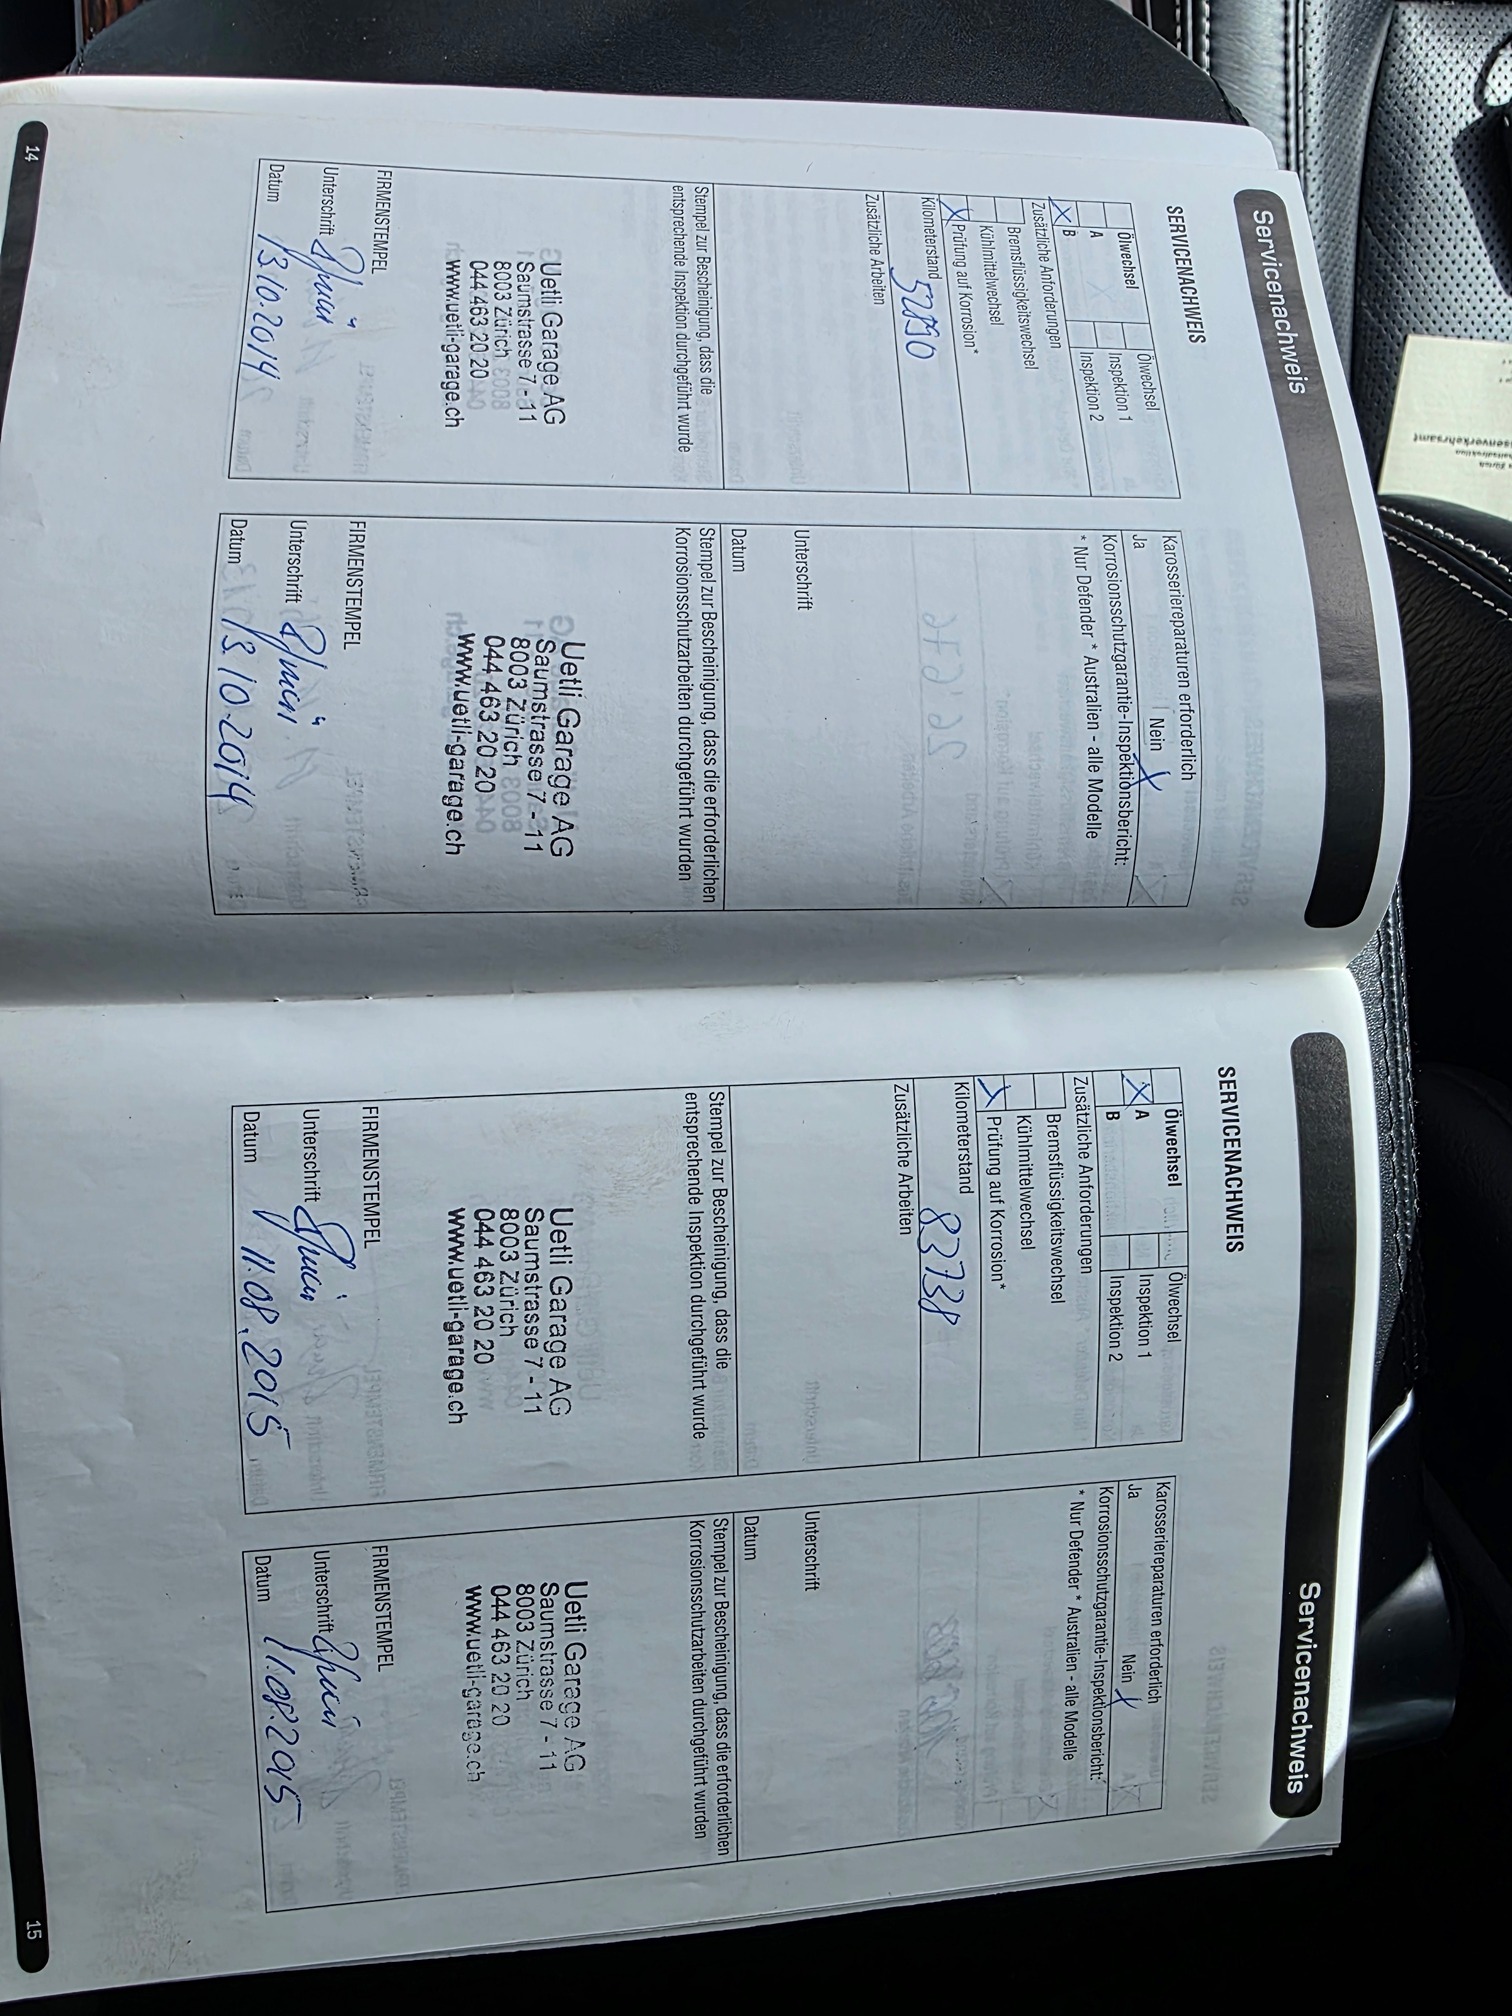 Servicenachweis
SERVICENACHWEIS
Ölwechsel
Ölwechsel
A
Inspektion 1
X B
Inspektion 2
Zusätzliche Anforderungen
Bremsflüssigkeitswechsel
Kühlmittelwechsel
X Prüfung auf Korrosion*
Kilometerstand 52890
Zusätzliche Arbeiten
Stempel zur Bescheinigung, dass die
entsprechende Inspektion durchgeführt wurde
Uetli Garage AG
Saumstrasse 7 - 11
8003 Zürich
044 463 20 20
www.uetli-garage.ch
FIRMENSTEMPEL
Unterschrift
Datum 13.10.2014
Karosseriereparaturen erforderlich
Ja Nein X
Korrosionsschutzgarantie-Inspektionsbericht:
* Nur Defender * Australien - alle Modelle
Unterschrift
Datum
Stempel zur Bescheinigung, dass die erforderlichen
Korrosionsschutzarbeiten durchgeführt wurden
Uetli Garage AG
Saumstrasse 7 - 11
8003 Zürich
044 463 20 20
www.uetli-garage.ch
FIRMENSTEMPEL
Unterschrift
Datum 13.10.2014
14
Servicenachweis
SERVICENACHWEIS
Ölwechsel
Ölwechsel
X A
Inspektion 1
B
Inspektion 2
Zusätzliche Anforderungen
Bremsflüssigkeitswechsel
Kühlmittelwechsel
X Prüfung auf Korrosion*
Kilometerstand 83738
Zusätzliche Arbeiten
Stempel zur Bescheinigung, dass die
entsprechende Inspektion durchgeführt wurde
Uetli Garage AG
Saumstrasse 7 - 11
8003 Zürich
044 463 20 20
www.uetli-garage.ch
FIRMENSTEMPEL
Unterschrift
Datum 11.08.2015
Karosseriereparaturen erforderlich
Ja Nein X
Korrosionsschutzgarantie-Inspektionsbericht:
* Nur Defender * Australien - alle Modelle
Unterschrift
Datum
Stempel zur Bescheinigung, dass die erforderlichen
Korrosionsschutzarbeiten durchgeführt wurden
Uetli Garage AG
Saumstrasse 7 - 11
8003 Zürich
044 463 20 20
www.uetli-garage.ch
FIRMENSTEMPEL
Unterschrift
Datum 11.08.2015
15